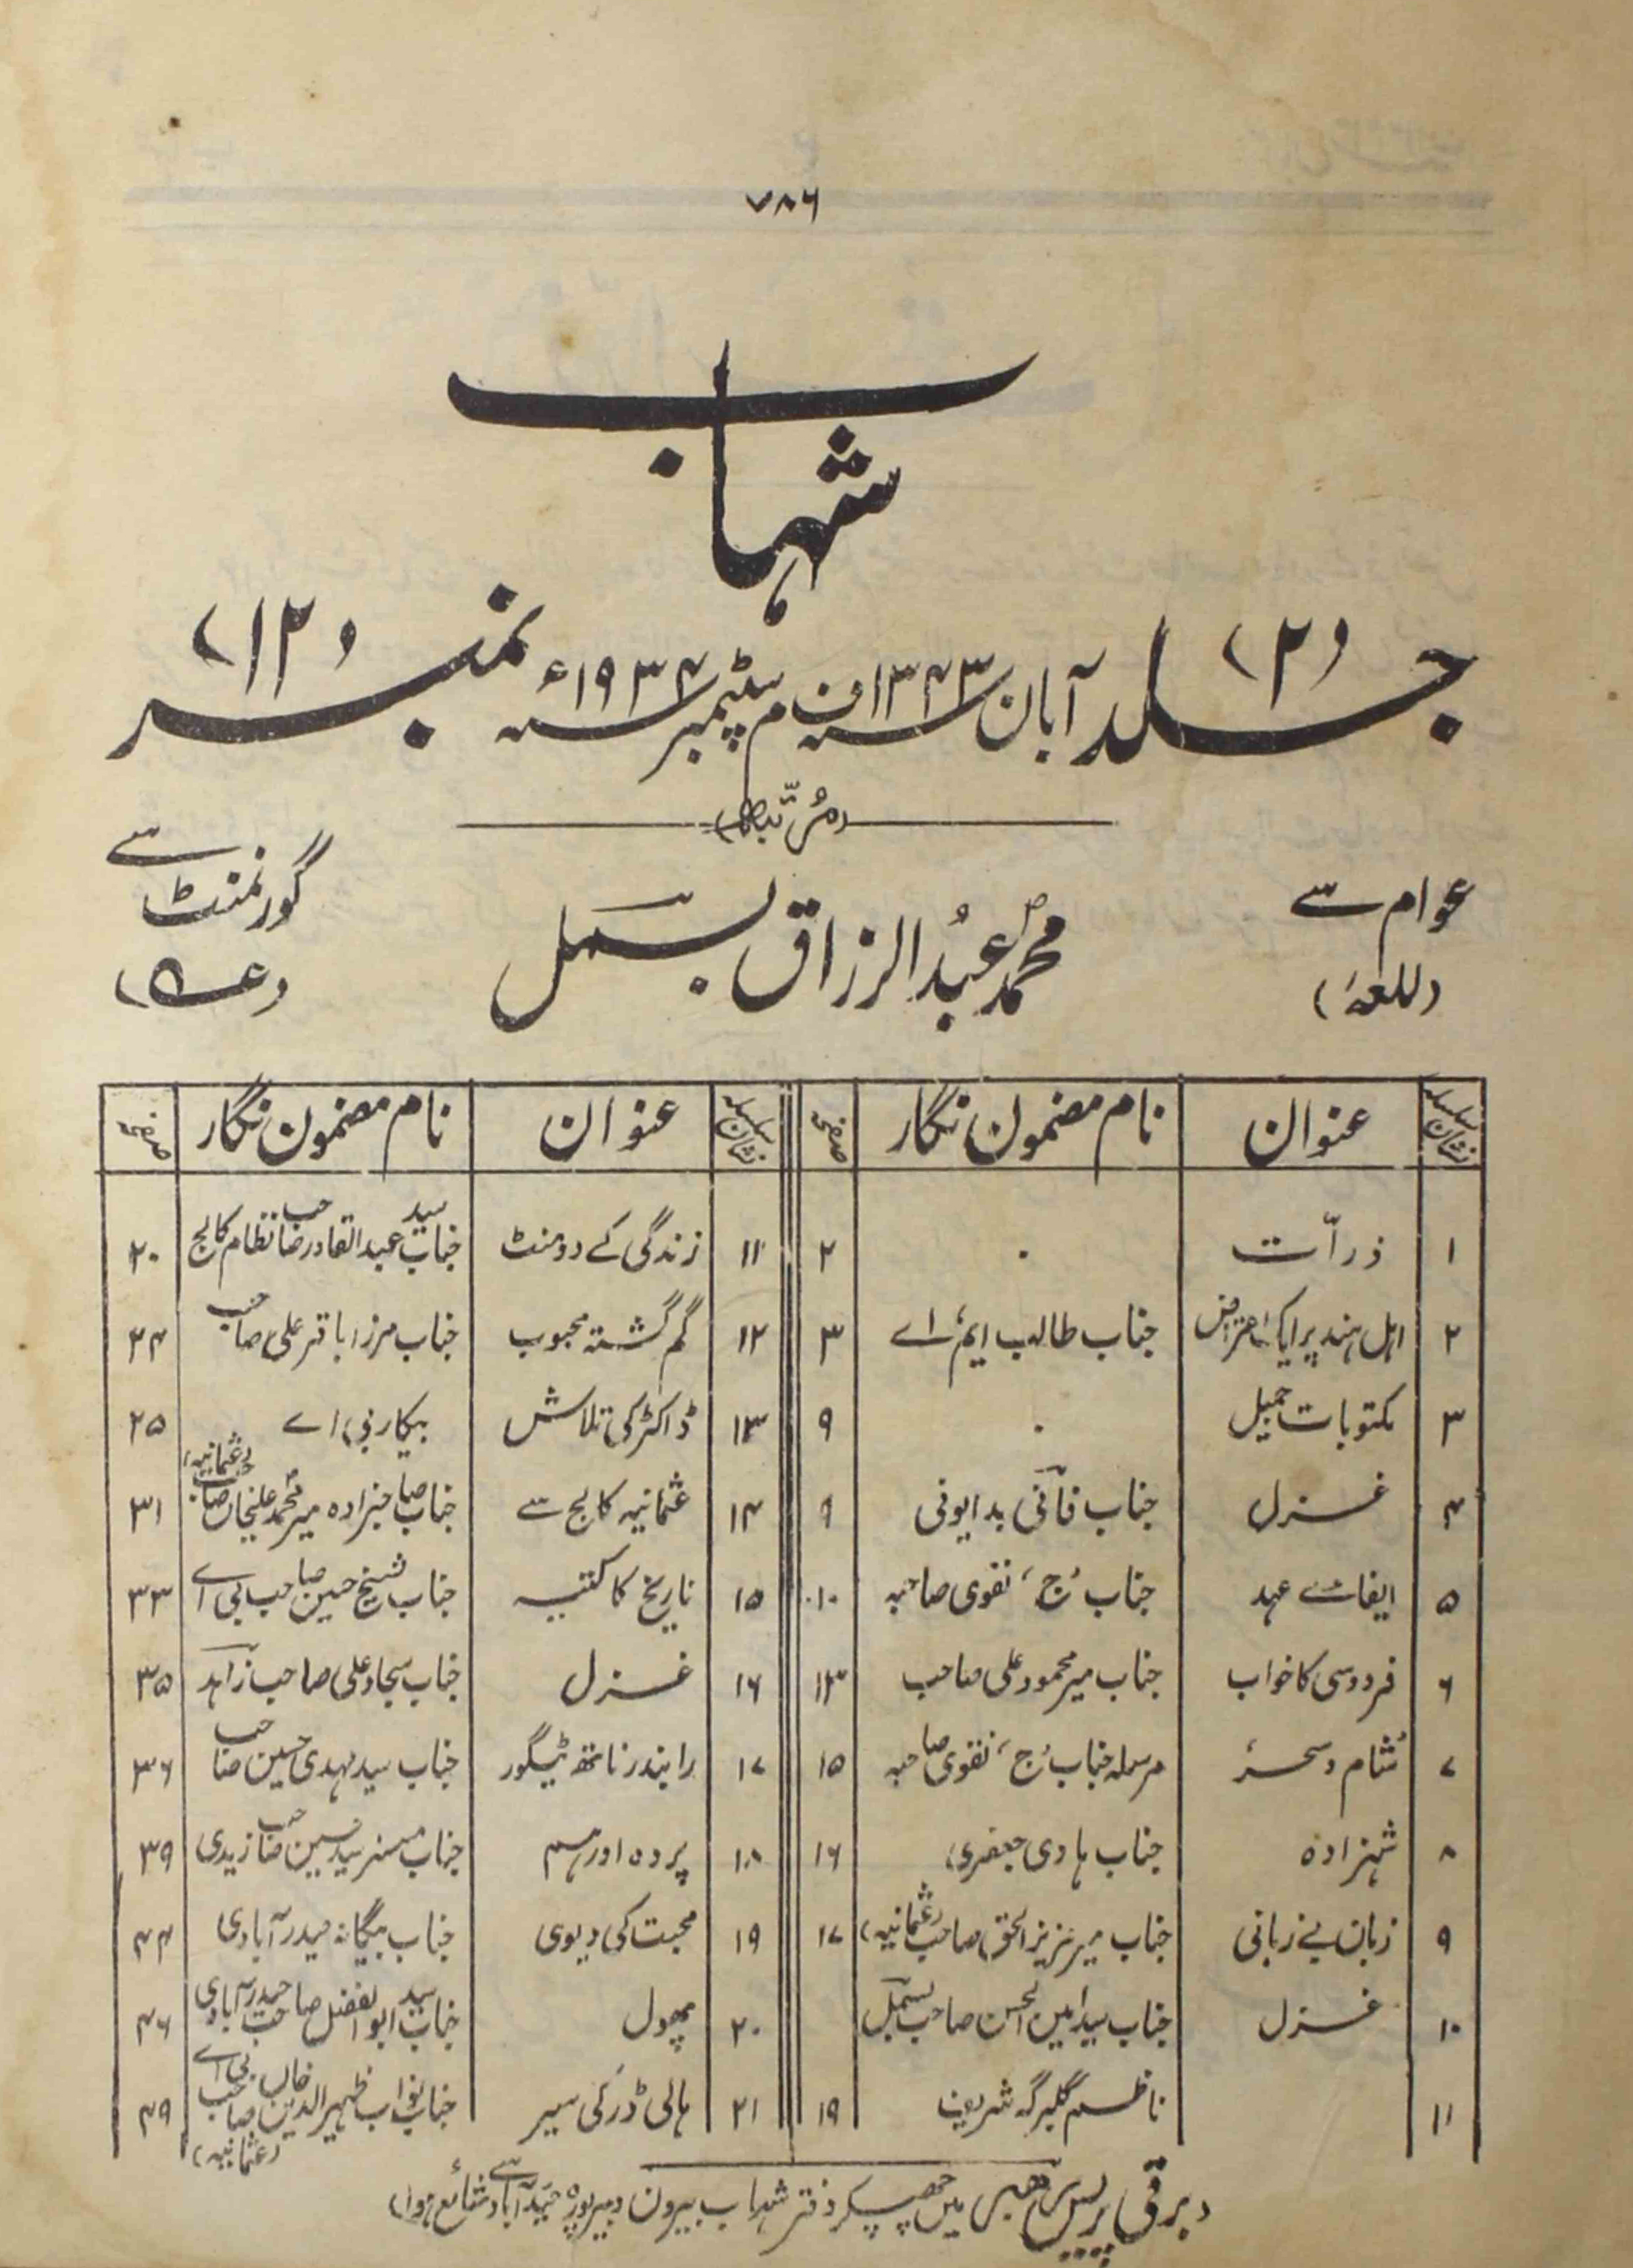 ۷۸۶
شہاب
جلد (۲) آبان سنہ ۱۳۴۳ ف م سپٹمبر سنہ ۱۹۳۴ء نمبر (۱۲)
عوام سے
(للعہ)
محمد عبدالرزاق بسمل
گورنمنٹ سے
نشان سلسلہ عنوان نام مضمون نگار صفحہ
۱ ذرّات ۰ ۲
۲ اہل ہند پر ایک اعتراض جناب طالب ایم اے ۳
۳ مکتوبات جمیل ۰ ۹
۴ غزل جناب فانی بدایونی ۹
۵ ایفائے عہد جناب ’ج‘ نقوی صاحبہ ۱۰
۶ فردوسی کا خواب جناب میر محمود علی صاحب ۱۳
۷ ’شام و سحر‘ مرسلہ جناب ’ج‘ نقوی صاحبہ ۱۵
۸ شہزادہ جناب ہادی جعفری ۱۶
۹ زبان بے زبانی جناب میر عزیز الحق صاحب (عثمانیہ) ۱۷
۱۰ غزل جناب سید امین الحسن صاحب بسمل
۱۱ ناظم گلبرگہ شریف ۱۹
نشان سلسلہ عنوان نام مضمون نگار صفحہ
۱۱ زندگی کے دو منٹ جناب سید عبدالقادر صاحب نظام کالج ۲۰
۱۲ گم گشتہ محبوب جناب مرزا باقر علی صاحب ۲۴
۱۳ ڈاکٹر کی تلاش بیکار بی، اے ۲۵
۱۴ عثمانیہ کالج سے جناب صاحبزادہ میر محمد علیخاں صاحب (عثمانیہ) ۳۱
۱۵ تاریخ کا کتبہ جناب شیخ حسین صاحب بی اے ۳۳
۱۶ غزل جناب سجاد علی صاحب زاہد ۳۵
۱۷ رابندر ناتھ ٹیگور جناب سید مہدی حسین صاحب ۳۶
۱۸ پردہ اور ہم جناب مسز سید حسین صاحب زیدی ۳۹
۱۹ محبت کی دیوی جناب بیگانہ حیدرآبادی ۴۴
۲۰ پھول جناب سید ابوالفضل صاحب حیدرآبادی ۴۶
۲۱ ہالی ڈر کی سیر جناب نواب ظہیر الدین خاں صاحب بی اے (عثمانیہ) ۴۹
(برقی پریس میں چھپکر دفتر شہاب بیرون دبیرپورہ حیدرآباد سے شائع ہوا)